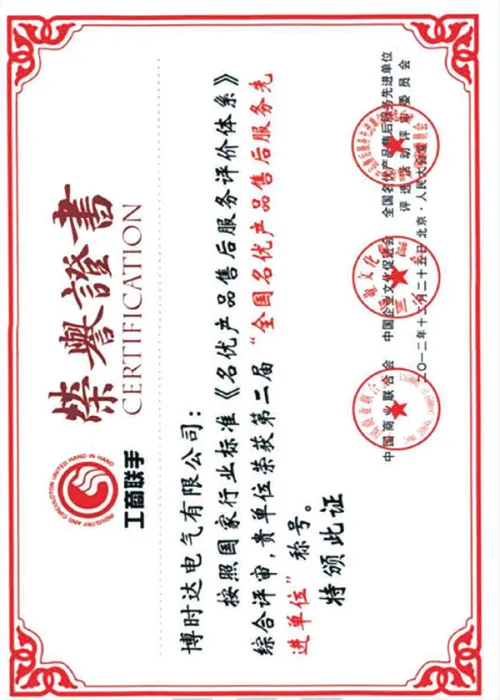 榮譽證書
CERTIFICATION
INDUSTRY AND CIRCULATION UNITED HAND IN HAND
工商联手
博时达电气有限公司：
按照国家行业标准《名优产品售后服务评价体系》
综合评审，贵单位荣获第二届“全国名优产品售后服务先
进单位”称号。
特颁此证
中国商业联合会 中国企业文化促进会 全国名优产品售后服务先进单位
评选活动评审委员会
二〇一二年十二月二十五日 北京·人民大会堂